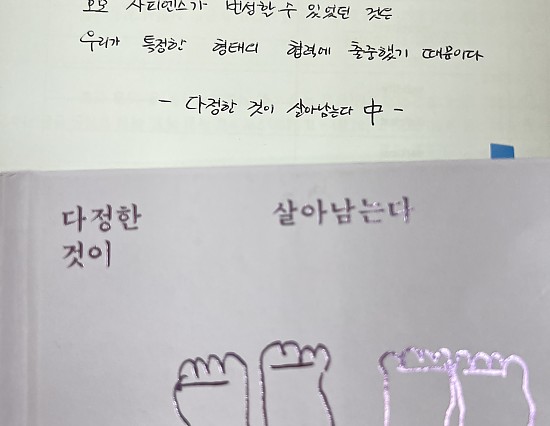 호모 사피엔스가 번성할 수 있었던 것은
우리가 특정한 형태의 협력에 출중했기 때문이다
- 다정한 것이 살아남는다 中 -
다정한
것이
살아남는다